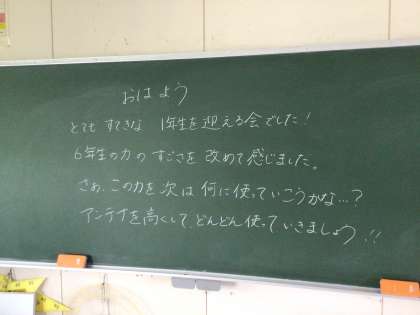 おはよう
とても すてきな 1年生を迎える会でした!
6年生の力の すごさを 改めて感じました。
さぁ、この力を次は 何に使っていこうかな…?
アンテナを高くして、どんどん使っていきましょう!!